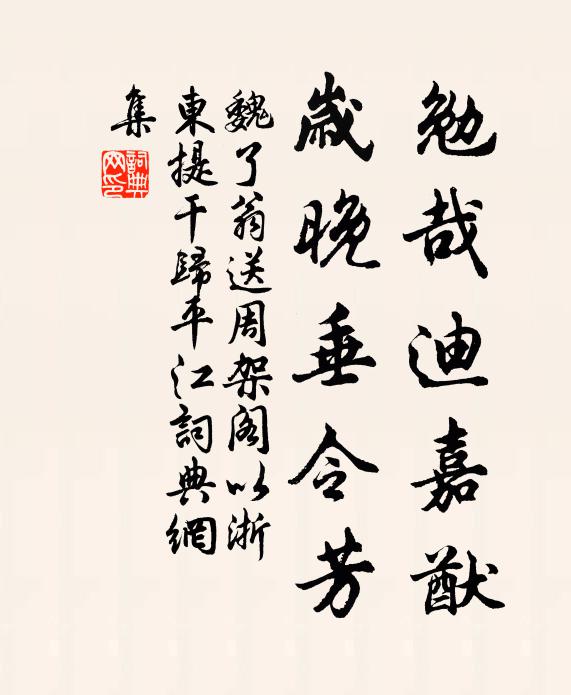 勉哉迪嘉猷
歲晚垂令芳
魏了翁送周架阁以浙
東提干歸平江詞典網
集
詞典网印